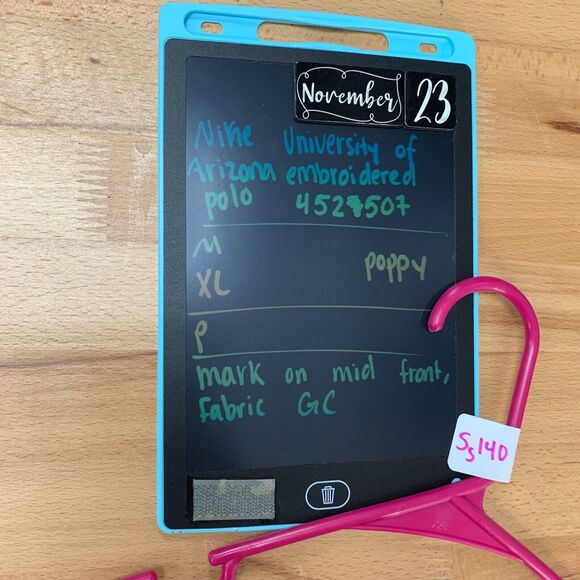 November 23
Nike University of
Arizona embroidered
polo 4527507
M
poppy
XL
P
mark on mid front,
Fabric GC
Ss140